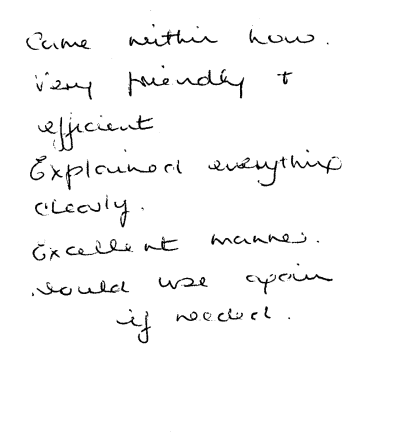 Came within hour.
Very friendly +
efficient
Explained everything
clearly.
Excellent manner.
would use again
if needed.